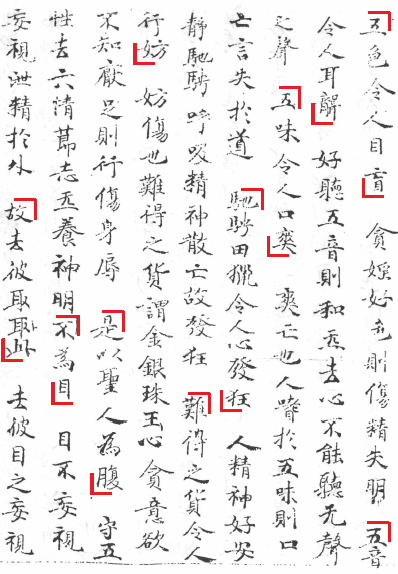 五色令人目盲 貪婬好色則傷精失明 五音
令人耳聾 好聽五音則和炁去心不能聽无聲
之聲 五味令人口爽 爽亡也人嗜於五味則口
亡言失於道 馳騁田獵令人心發狂 人精神好安
靜馳騁呼吸精神散亡故發狂 難得之貨令人
行妨 妨傷也難得之貨謂金銀珠玉心貪意欲
不知厭足則行傷身辱 是以聖人為腹 守五
性去六情節志炁養神明 不為目 目不妄視
妄視泄精於外 故去彼取此 去彼目之妄視